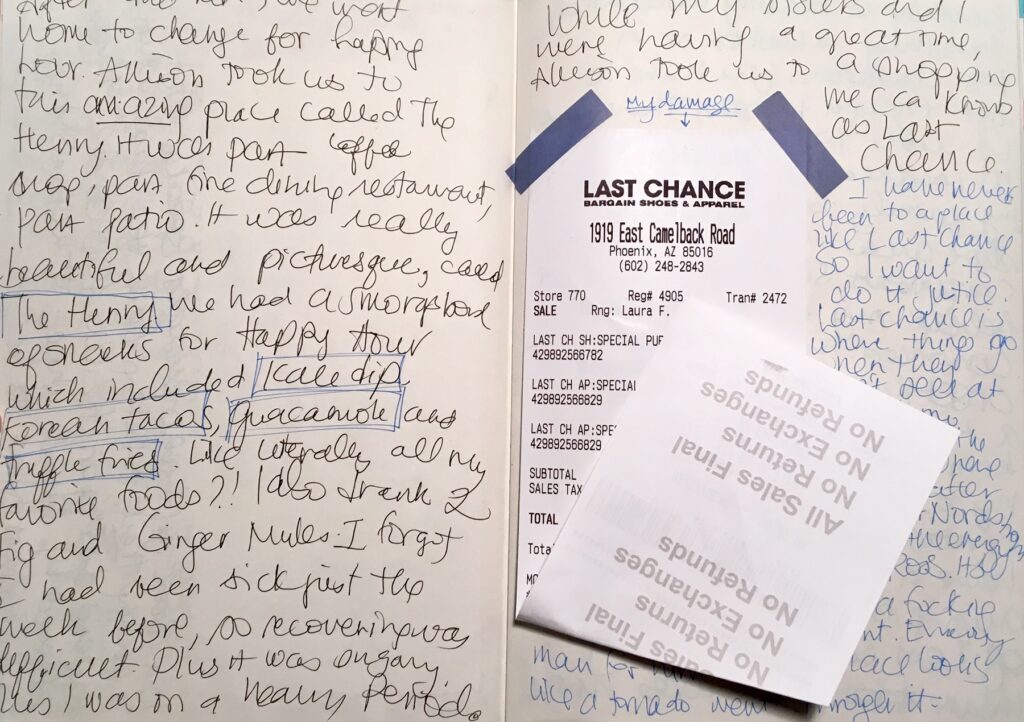 After the run, we went
home to change for happy
hour. Allison took us to
this amazing place called The
Henny. It was part coffee
shop, part fine dining restaurant,
part patio. It was really
beautiful and picturesque, called
The Henny we had a smorgasbord
of snacks for Happy Hour
which included Kale dip,
Korean tacos, guacamole and
truffle fries. Like literally all my
favorite foods?! I also drank 2
Fig and Ginger Mules. I forgot
I had been sick just the
week before, so recovering was
difficult. Plus it was
I was on a heavy Period.
While my sisters and I
were having a great time,
Allison took us to a shopping
mecca known
as Last
Chance.
My damage
LAST CHANCE
BARGAIN SHOES & APPAREL
1919 East Camelback Road
Phoenix, AZ 85016
(602) 248-2843
Store 770 Reg# 4905 Tran# 2472
SALE Rng: Laura F.
LAST CH SH:SPECIAL PUR
429892566782
LAST CH AP:SPECIAL
429892566829
LAST CH AP:SPE
429892566829
SUBTOTAL
SALES TAX
TOTAL
Total
No Refunds
No Exchanges
No Returns
All Sales Final
No Refunds
No Exchanges
No Returns
Sales Final
I have never
been to a place
like Last Chance
so I want to
do it justice.
Last Chance is
where things go
when they
sell at
the
Nords
the energy
a fucking
Every
man for place looks
like a tornado went through it.